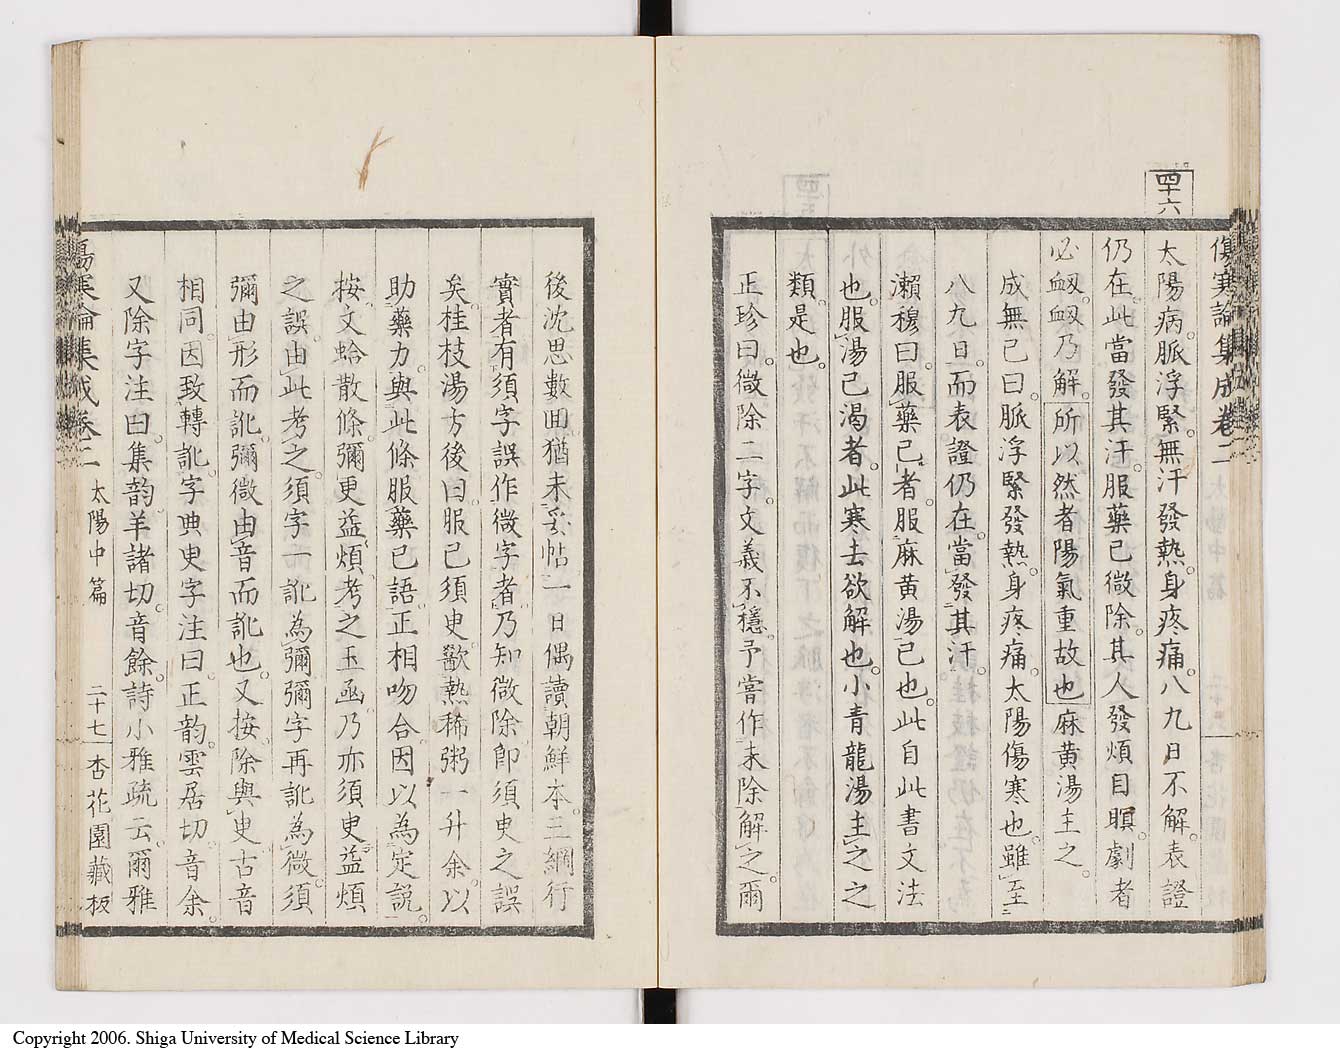 四十六
傷寒論集成卷二
太陽病。脈浮緊。無汗發熱。身疼痛。八九日不解。表證
仍在。此當發其汗。服藥已微除。其人發煩目瞑。劇者
必衂。衂乃解。所以然者陽氣重故也麻黄湯主之。
成無己曰。脈浮緊發熱。身疼痛。太陽傷寒也。雖至二
八九日。而表證仍在。當發其汗。
瀨穆曰。服藥已者。服麻黄湯已也。此自此書文法
也。服湯已渴者。此寒去欲解也。小青龍湯主之之
類。是也。
正珍曰。微除二字。文義不穩。予嘗作未除解之。爾
後沈思數囬猶未妥帖。一日偶讀朝鮮本。三綱行
實者有須字誤作微字者。乃知微除。卽須臾之誤
矣。桂枝湯方後曰。服已須臾。歠熱稀粥一升余。以
助藥力。與此條服藥已語。正相吻合。因以為定說。
按。文蛤散條。彌更益煩。考之玉函。乃亦須臾益煩
之誤。由此考之。須字一訛為彌。彌字再訛為微。須
彌由形而訛。彌微由音而訛也。又按除與臾古音
相同。因致轉訛。字典臾字注曰。正韵。雲居切。音余。
又除字注曰。集韵。羊諸切。音餘。詩小雅疏云。爾雅
傷寒論集成卷二　太陽中篇　二十七　杏花園藏板
Copyright 2006. Shiga University of Medical Science Library